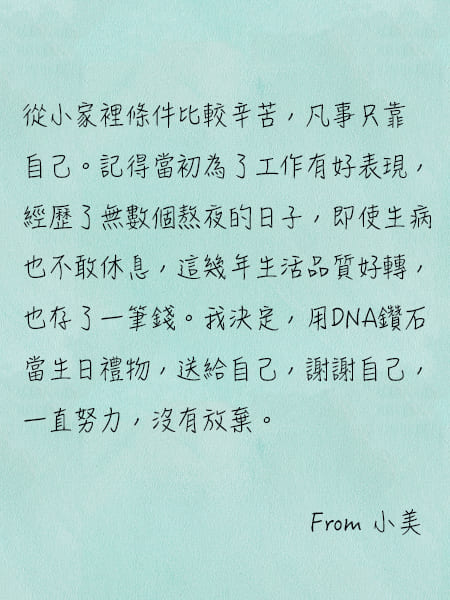 從小家裡條件比較辛苦，凡事只靠
自己。記得當初為了工作有好表現，
經歷了無數個熬夜的日子，即使生病
也不敢休息，這幾年生活品質好轉，
也存了一筆錢。我決定，用DNA鑽石
當生日禮物，送給自己，謝謝自己，
一直努力，沒有放棄。
From 小美